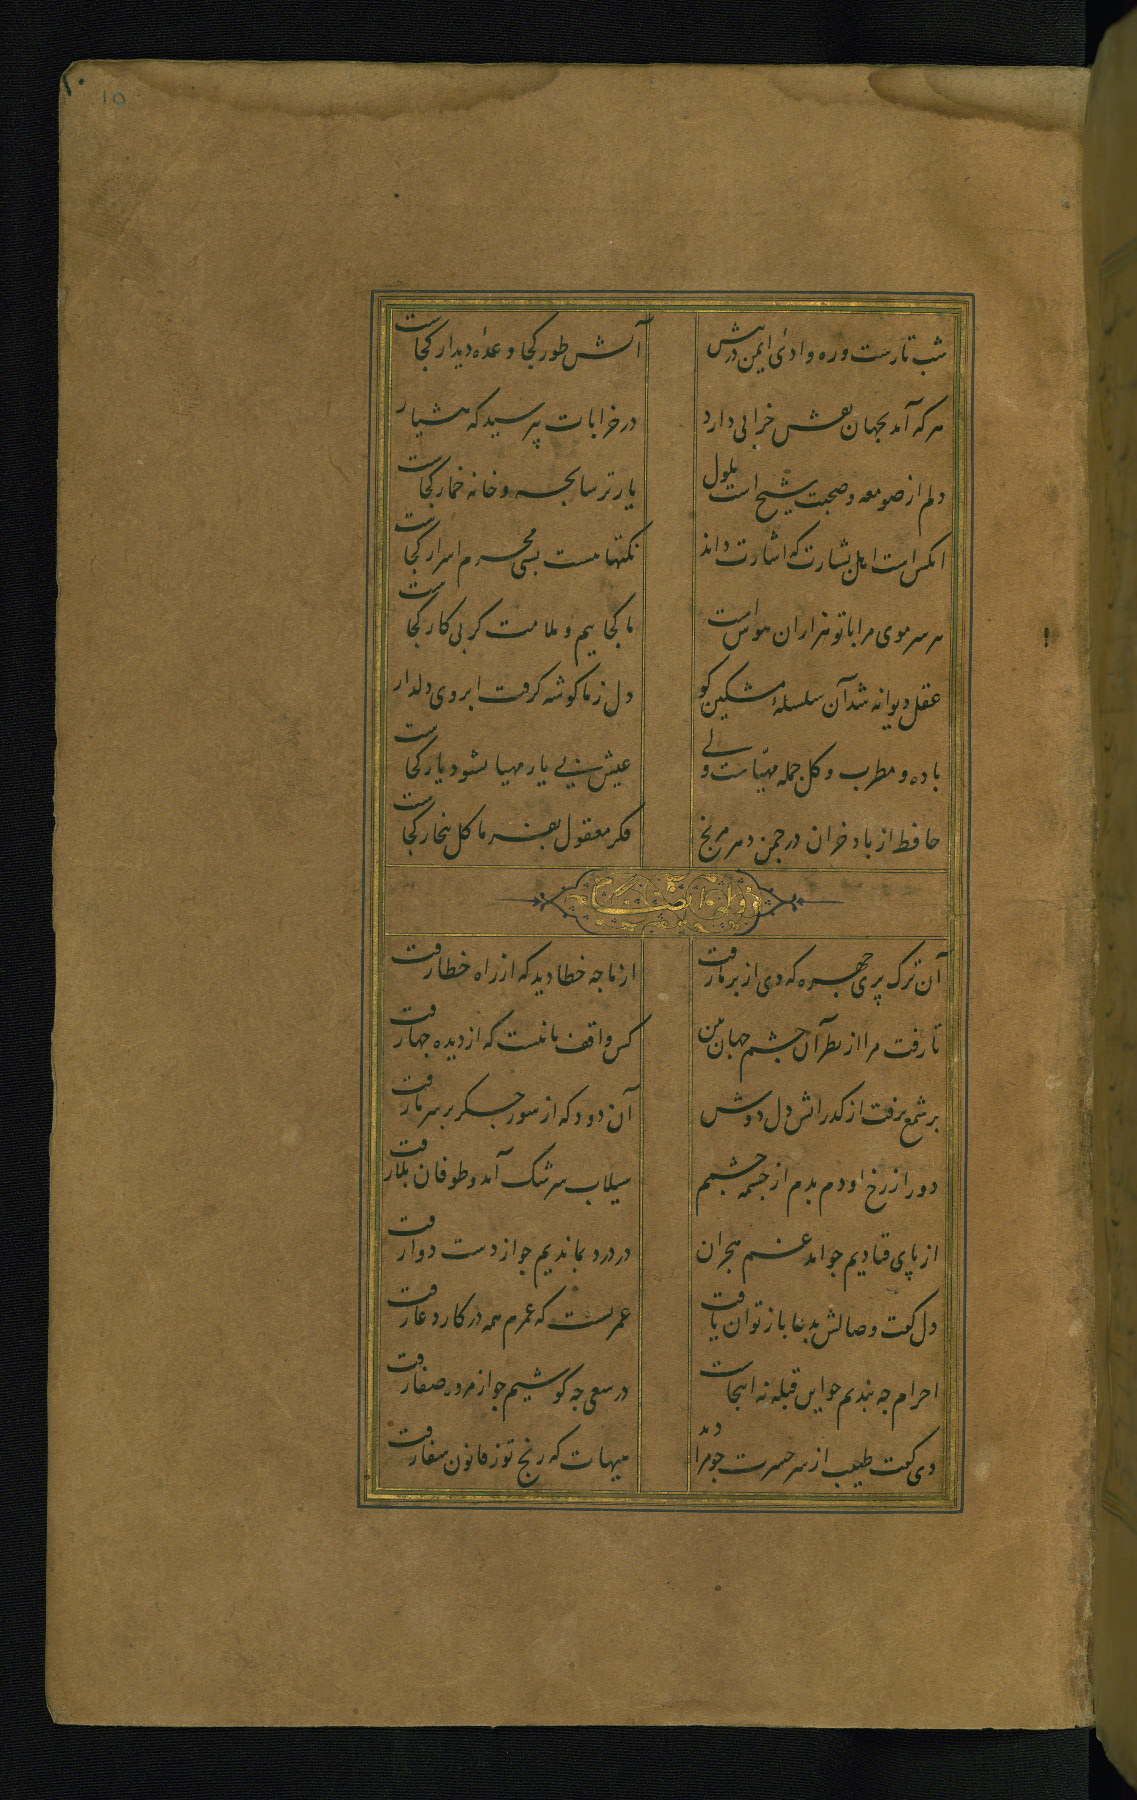 ۱۰
۱۵
شب تارست و ره وادئ ایمن در پیش
آتش طور کجا وعدۀ دیدار کجاست
هر که آمد بجهان نقش خرابی دارد
در خرابات بپرسید که هشیار
دلم از صومعه و صحبت شیخ است ملول
یار ترسابچه و خانه خمار کجاست
انکس است اهل بشارت که اشارت داند
نکتها هست بسی محرم اسرار کجاست
هر سر موی مرا با تو هزاران هوس است
ما کجاییم و ملامت کر بی کار کجاست
عقل دیوانه شد آن سلسلۀ مشکین کو
دل ز ما کوشه کرفت ابروی دلدار
باده و مطرب و کل جمله مهیّاست ولی
عیش بی یار مهیا نشود یار کجاست
حافظ از باد خزان در چمن دهر مرنج
فکر معقول بفرما کل بیخار کجاست
وله ایضا
آن ترک پری چهره که دی از بر ما رفت
از ما چه خطا دید که از راه خطا رفت
تا رفت مرا از نظر آن چشم جهان بین
کس واقف ما نیست که از دیده چها رفت
بر شمع نرفت از کذر اتش دل دوش
آن دود که از سوز جکر بر سر ما رفت
دور از رخ او دم بدم از چشمه چشمم
سیلاب سرشک آمد و طوفان بلا رفت
از پای فتادیم چو امد غم هجران
در درد بماندیم چو از دست دوا رفت
دل کفت وصالش بدعا باز توان یافت
عمریست که عمرم همه در کار دعا رفت
احرام چه بندیم چو این قبله نه اینجاست
در سعی چه کوشیم چو از مروه صفا رفت
دی کفت طبیب از سر حسرت چو مرا دید
هیهات که رنج تو ز قانون شفا رفت